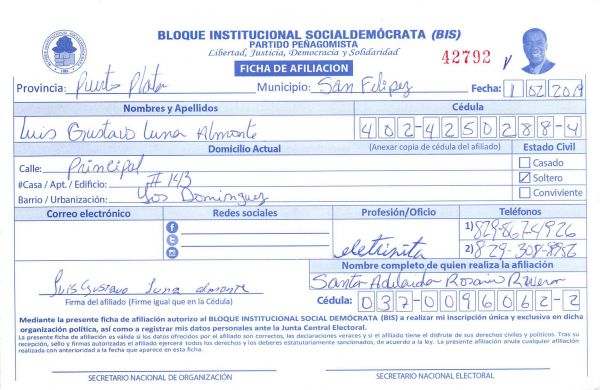 BLOQUE INSTITUCIONAL SOCIALDEMÓCRATA (BIS)
PARTIDO PEÑAGOMISTA
Libertad, Justicia, Democracia y Solidaridad
42792
FICHA DE AFILIACION
Provincia: Puerto Plata Municipio: San Felipez Fecha: 1 02 2019
Nombres y Apellidos Cédula
Luis Gustavo Luna Almonte 402-4250288-4
Domicilio Actual (Anexar copia de cédula del afiliado) Estado Civil
Calle: Principal Casado
#Casa / Apt. / Edificio: #143 Soltero
Barrio / Urbanización: Los Dominguez Conviviente
Correo electrónico Redes sociales Profesión/Oficio Teléfonos
1) 829-867-4926
2) 829-308-8986
Nombre completo de quien realiza la afiliación
Luis Gustavo Luna almonte Santa Rosario
Firma del afiliado (Firme igual que en la Cédula) Cédula: 037-0096062-2
Mediante la presente ficha de afiliación autorizo al BLOQUE INSTITUCIONAL SOCIAL DEMÓCRATA (BIS) a realizar mi inscripción única y exclusiva en dicha
organización política, así como a registrar mis datos personales ante la Junta Central Electoral.
La presente ficha de afiliación es válida si los datos ofrecidos por el afiliado son correctos, las declaraciones veraces y si el afiliado tiene el disfrute de sus derechos civiles y políticos. Tras su
recepción, sello y firmas autorizadas el afiliado ejercerá todos los derechos y los deberes estatutariamente sancionados, de acuerdo a la ley. La presente afiliación anula cualquier afiliación
realizada con anterioridad a la fecha que aparece en esta ficha.
SECRETARIO NACIONAL DE ORGANIZACIÓN SECRETARIO NACIONAL ELECTORAL